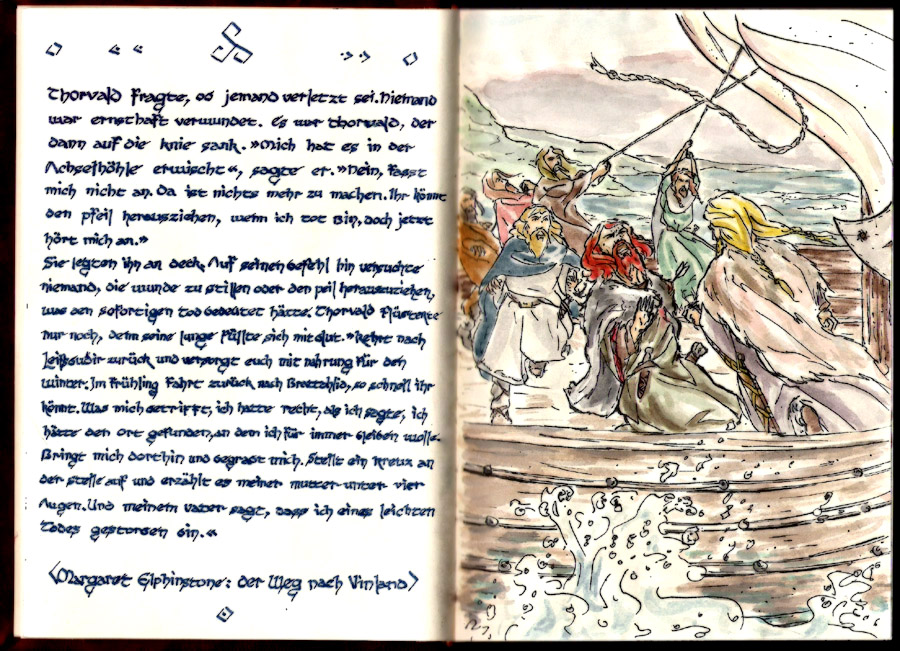 Thorvald fragte, ob jemand verletzt sei. Niemand
war ernsthaft verwundet. Es war Thorvald, der
dann auf die Knie sank. »Mich hat es in der
Achselhöhle erwischt«, sagte er. »Nein, fasst
mich nicht an. Da ist nichts mehr zu machen. Ihr könnt
den Pfeil herausziehen, wenn ich tot bin, doch jetzt
hört mich an.»
Sie legten ihn an Deck. Auf seinen Befehl hin versuchte
niemand, die Wunde zu stillen oder den Peil herauszuziehen,
was den sofortigen Tod bedeutet hätte. Thorvald flüsterte
nur noch, denn seine Lunge füllte sich mit Blut. »Kehrt nach
Leifsbudir zurück und versorgt euch mit Nahrung für den
Winter. Im Frühling fahrt zurück nach Brattahlid, so schnell ihr
könnt. Was mich betrifft, ich hatte recht, als ich sagte, ich
hätte den Ort gefunden, an dem ich für immer bleiben wolle.
Bringt mich dorthin und begrabt mich. Stellt ein Kreuz an
der Stelle auf und erzählt es meiner Mutter unter vier
Augen. Und meinem Vater sagt, dass ich eines leichten
Todes gestorben bin.«
<Margaret Elphinstone: der Weg nach Vinland>